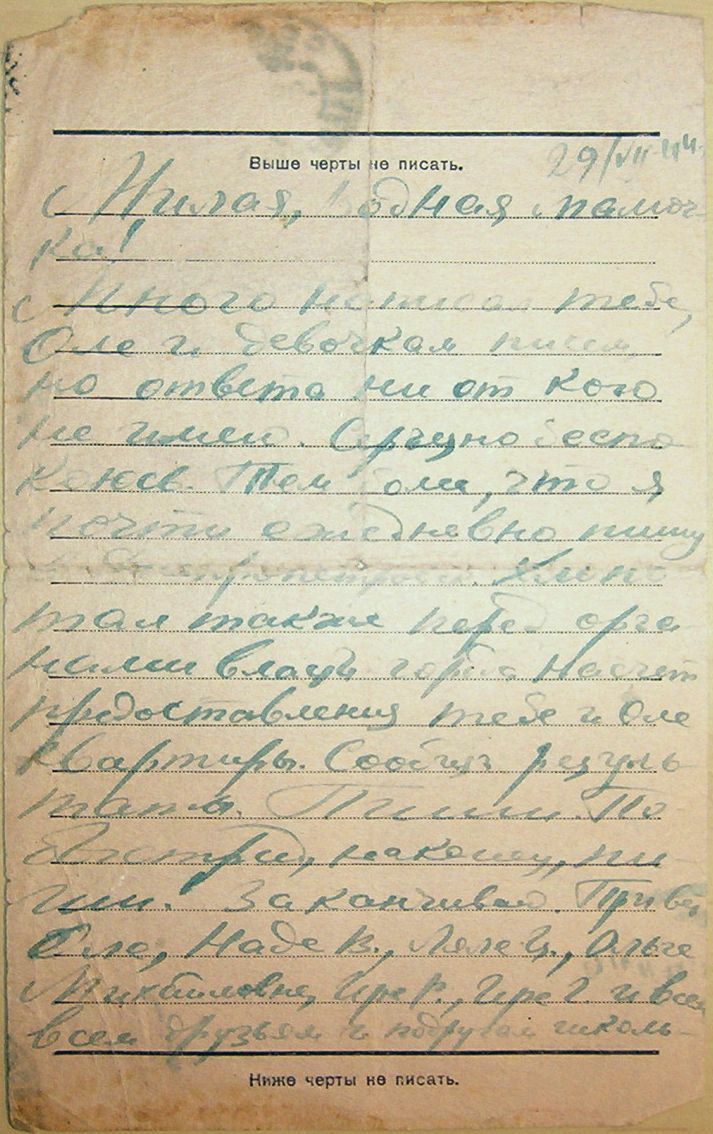 Выше черты не писать.
29/VII-44
Милая, родная мамоч-
ка!
Много написал тебе,
Оле и девочкам писем,
но ответа ни от кого
не имею. Страшно беспо-
коюсь. Тем более, что я
почти ежедневно пишу
в Днепропетровск.
также перед орга-
нами власти города насчет
предоставления тебе и Оле
квартиры. Сообщи резуль-
таты. Пиши. По-
быстрей, наконец, пи-
ши. Заканчиваю. Привет
Оле, Наде В., Ляле Ц., Ольге
Михайловне, Ире Р., Ире Г. и всем
всем друзьям и подругам школь-
Ниже черты не писать.